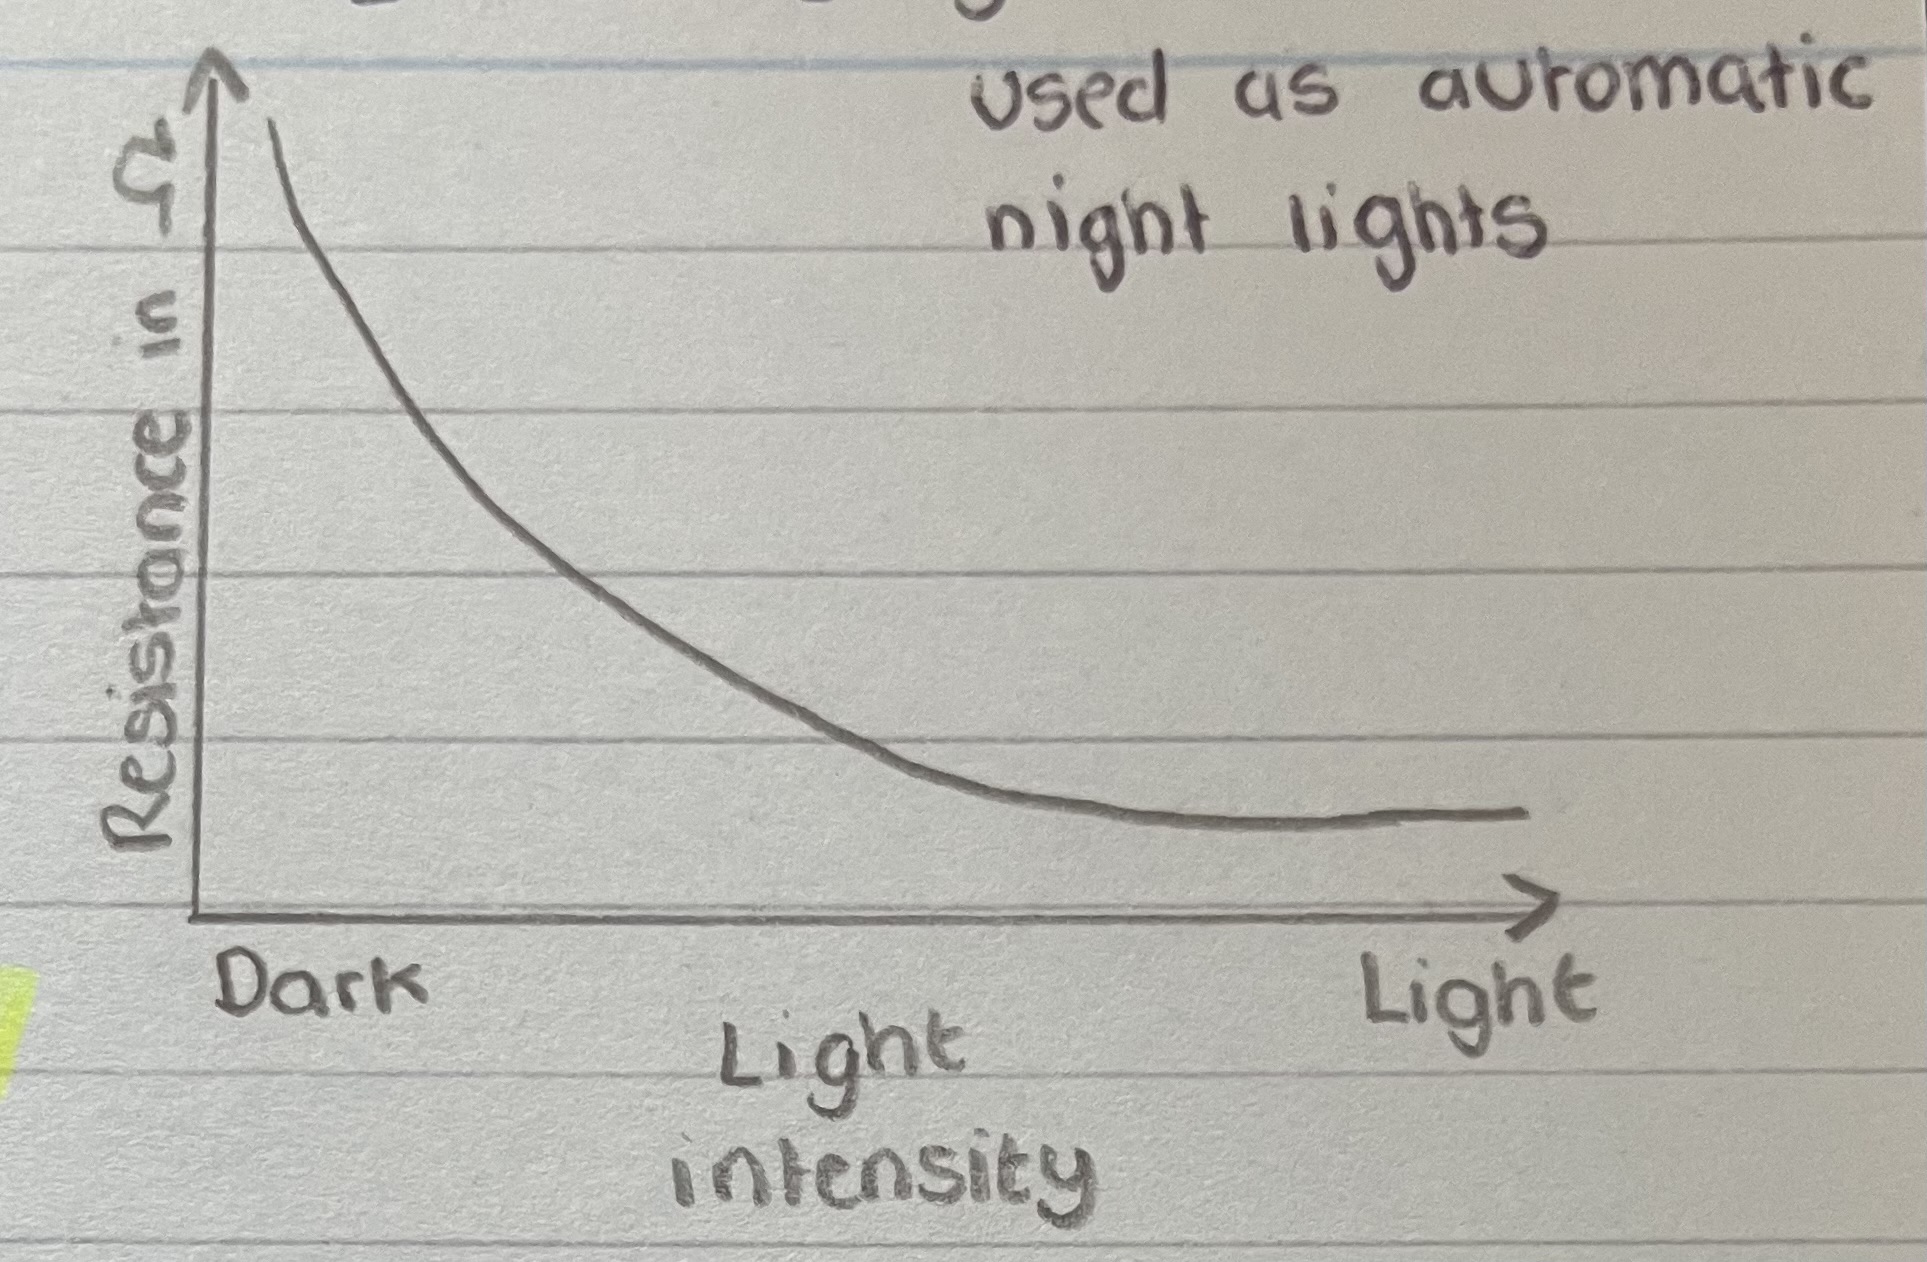 used as automatic
night lights
Resistance in Ω
Dark
Light
Light
intensity